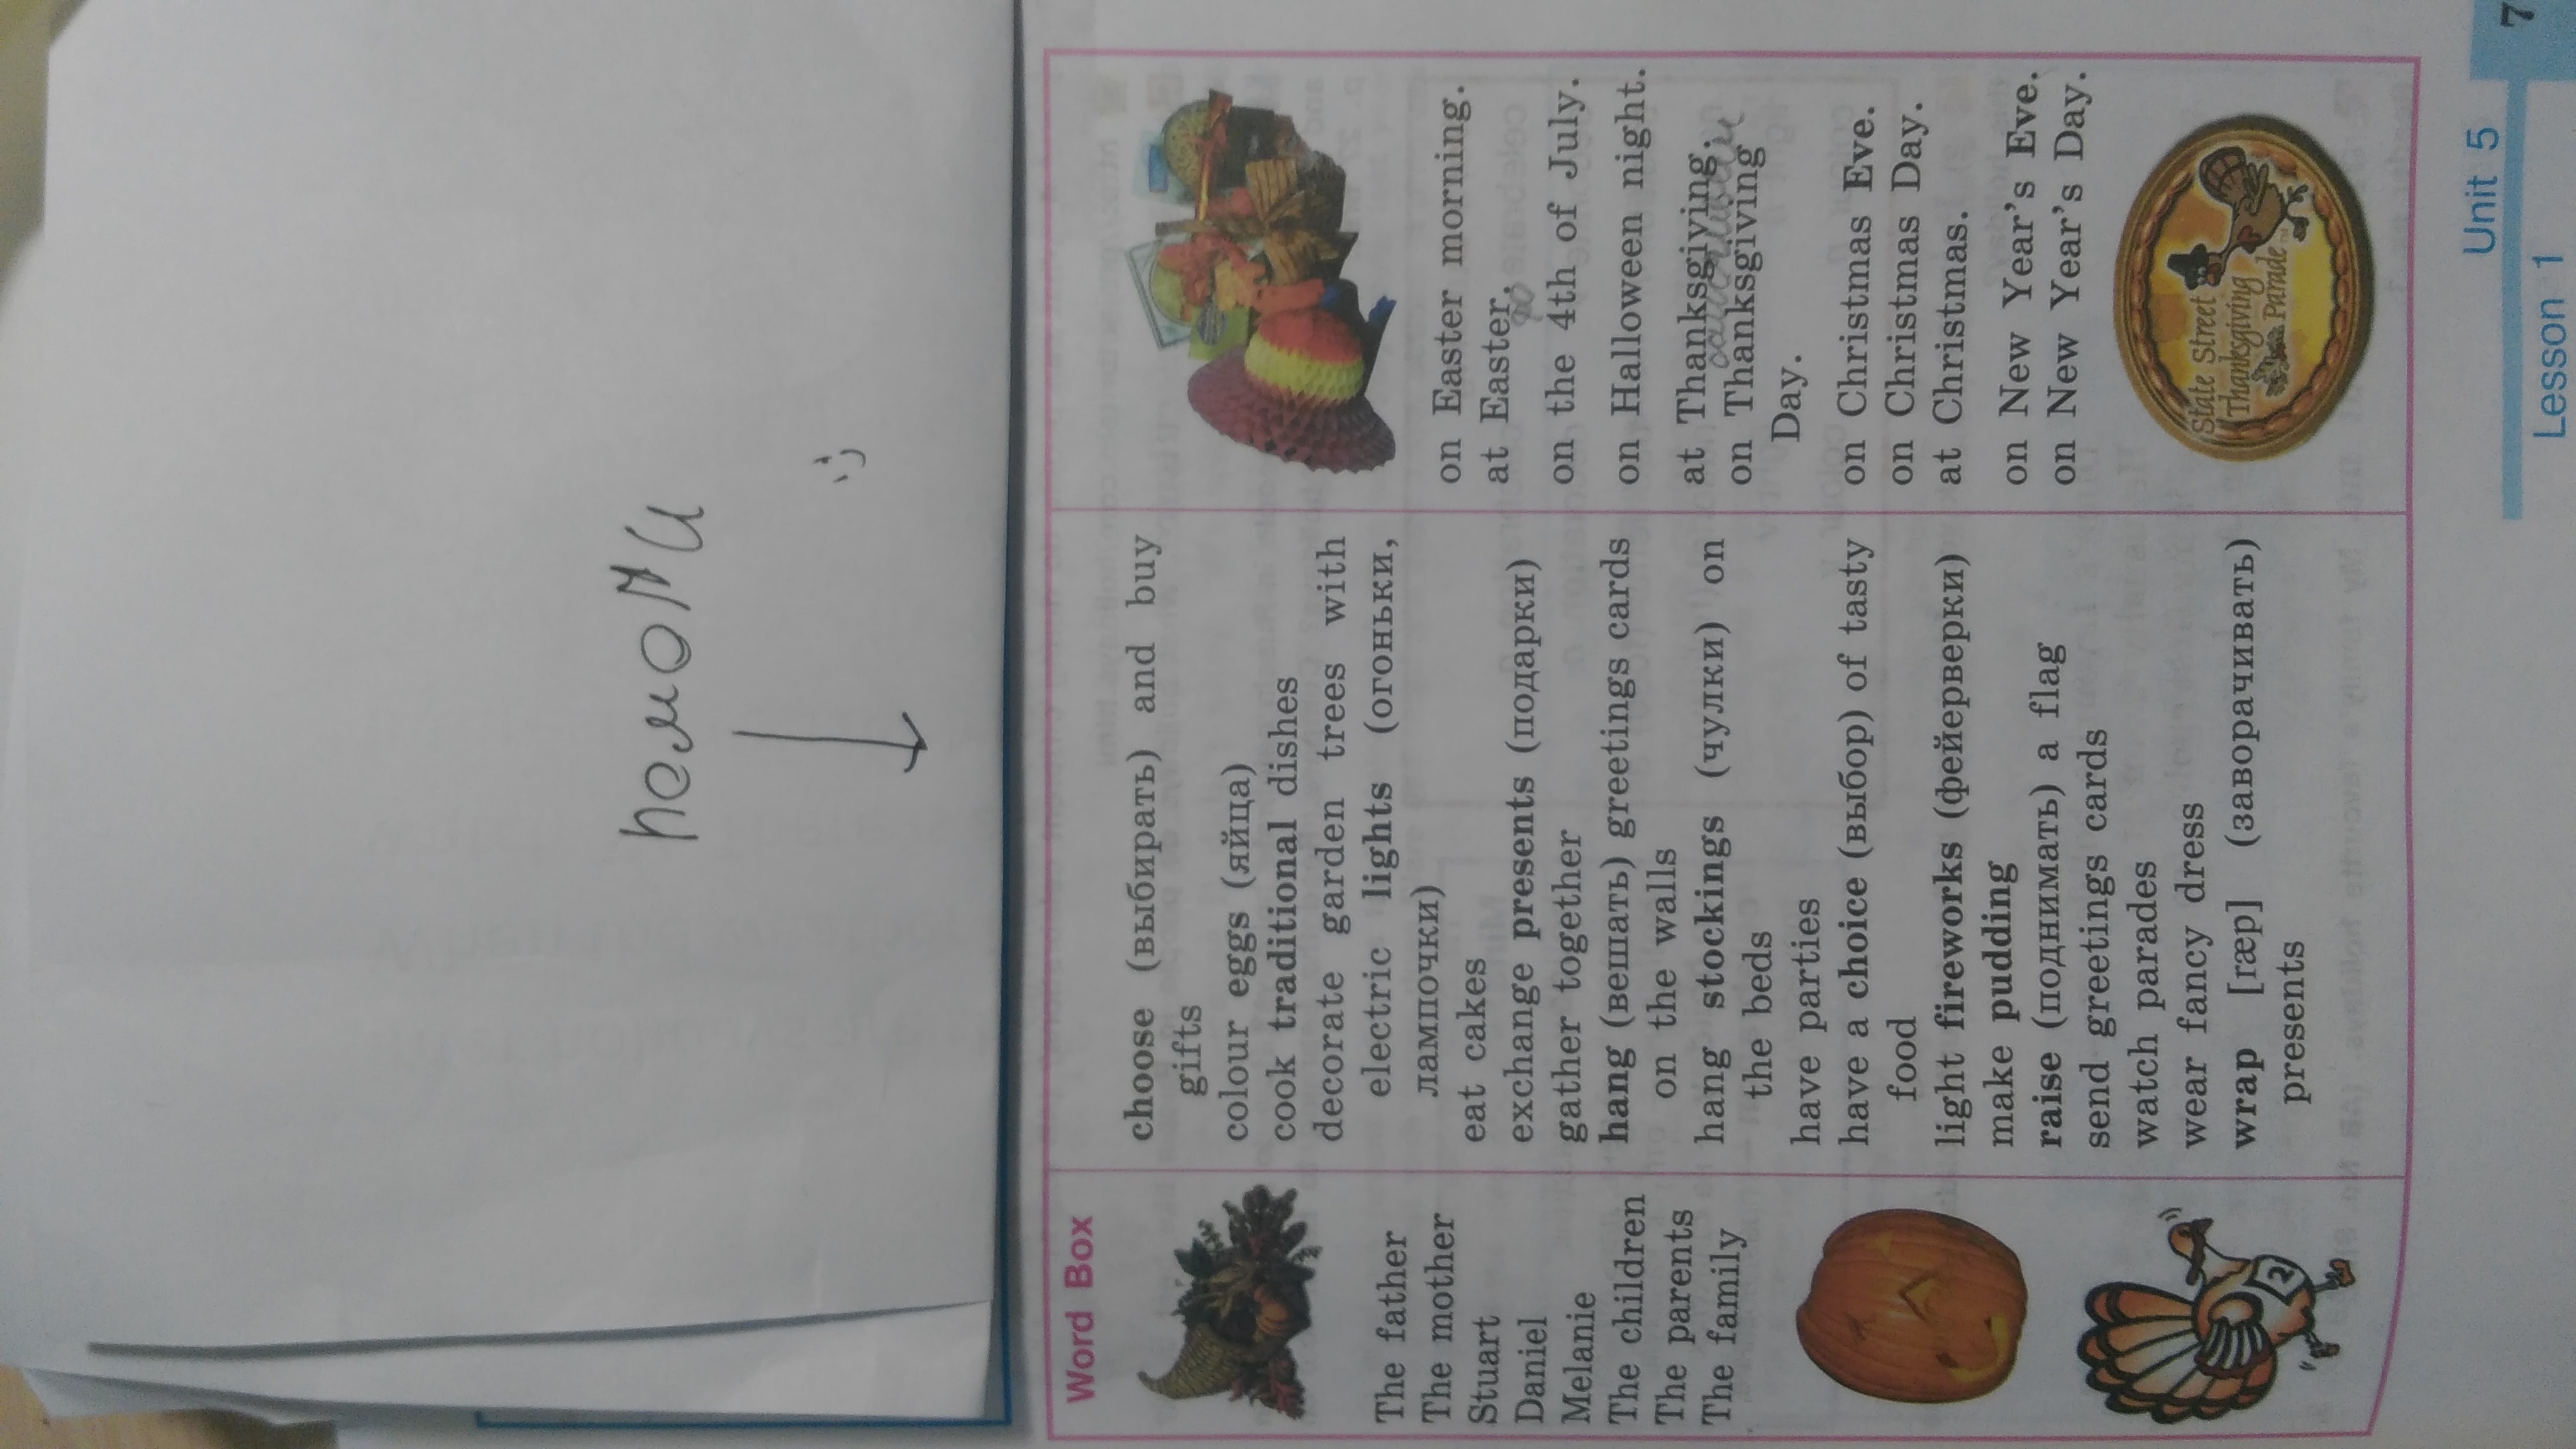 помоги
:)
Word Box
The father
The mother
Stuart
Daniel
Melanie
The children
The parents
The family
2
choose (выбирать) and buy
gifts
colour eggs (яйца)
cook traditional dishes
decorate garden trees with
electric lights (огоньки,
лампочки)
eat cakes
exchange presents (подарки)
gather together
hang (вешать) greetings cards
on the walls
hang stockings (чулки) on
the beds
have parties
have a choice (выбор) of tasty
food
light fireworks (фейерверки)
make pudding
raise (поднимать) a flag
send greetings cards
watch parades
wear fancy dress
wrap [ræp] (заворачивать)
presents
on Easter morning.
at Easter.
on the 4th of July.
on Halloween night.
at Thanksgiving.
on Thanksgiving
Day.
on Christmas Eve.
on Christmas Day.
at Christmas.
on New Year's Eve.
on New Year's Day.
State Street
Thanksgiving
Parade
Unit 5
Lesson 1
7